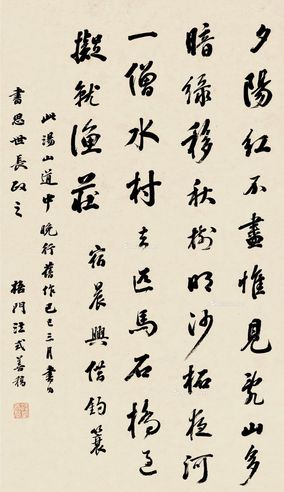 夕陽紅不盡惟見亂山多
暗綠移秋樹明沙拓夜河
一僧水村去匹馬石橋過
擬就漁莊宿晨興借釣蓑
此湯山道中晚行舊作己巳三月書似
書思世長政之 梧門法式善稿